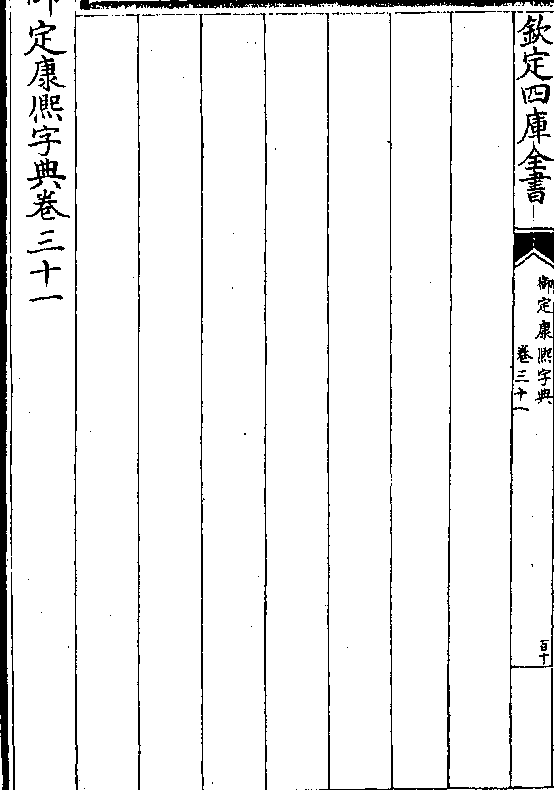 欽定四庫全書
御定康熙字典
卷三十一
百十
御定康熙字典卷三十一